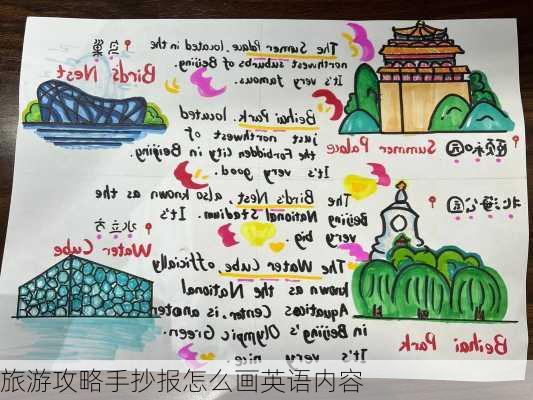 鸟巢
Bird's Nest
The Sumer Palace. located in the
northwest suburbs of Beijing.
It's very famous.
颐和园
Summer Palace
Beihai Park. located
just northwest of
the Forbidden City in Beijing
It's very good.
水立方
Water Cube
The Bird's Nest. also known as the
Beijing National Stadium. It's
very big.
北海公园
Beihai Park
The Water Cube officially
known as the National
Aquatics Center, is
in Beijing's Olympic Green.
It's very nice.
旅游攻略手抄报怎么画英语内容